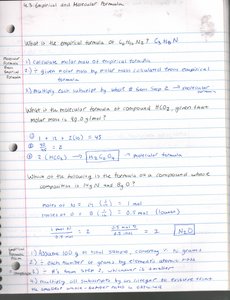 4.3 Empirical and Molecular Formula
What is the empirical formula of C6H12N2? C3H6N
Molecular Formula from Empirical Formula
1) Calculate molar mass of empirical formula
2) ÷ given molar mass by molar mass calculated from empirical formula
3) Multiply each subscript by what # from step 2 → molecular formula
What is the molecular formula of compound HCO2, given that
molar mass is 90.0 g/mol?
① 1 + 12 + 2(16) = 45
② 90/45 = 2
③ 2 (HCO2) → H2C2O4 → molecular formula
Which of the following is the formula of a compound whose
composition is 14g N and 8g O?
moles of N: 14 (1/14) = 1 mol
moles of O: 8 (1/16) = 0.5 mol (lowest)
1 mol N / 0.5 mol = 2
0.5 mol O / 0.5 mol = 1
N2O
1) Assume 100 g of total sample, convert % to grams
2) ÷ each number in grams by elements atomic mass
3) ÷ #'s from step 2, whichever is smaller
4) multiply all subscripts by an integer to
the smallest whole-number ratio is obtained